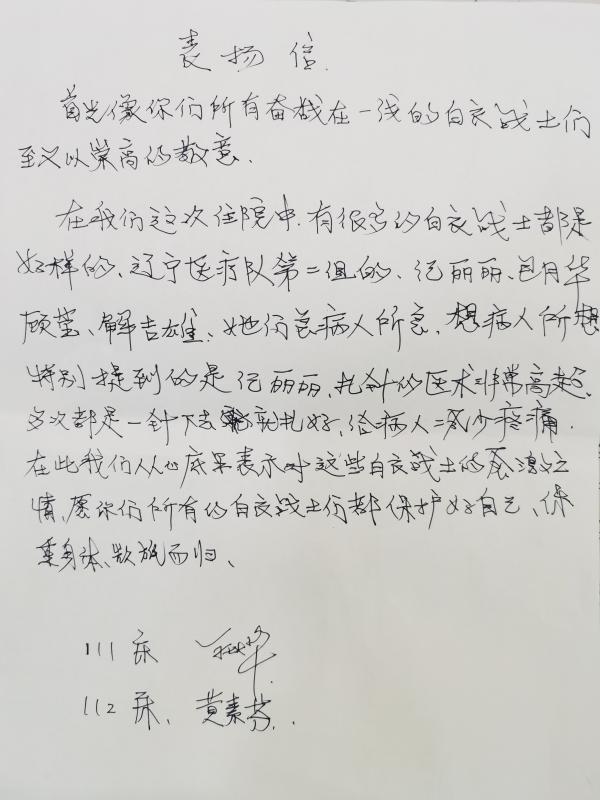 表扬信.
首先像你们所有奋战在一线的白衣战士们
至义以崇高的敬意.
在我们这次住院中.有很多的白衣战士都是
好样的、辽宁医疗队第二组的、纪丽丽、吕月华
顾莹、解吉雄、她们急病人所急.想病人所想
特别提到的是纪丽丽,扎针的医术非常高超.
多次都是一针下去就扎好,给病人减少疼痛.
在此我们从心底里表示对这些白衣战士的感激之
情,愿你们所有的白衣战士们都保护好自己、保
重身体、凯旋而归、
111床
112床、黄素芬.